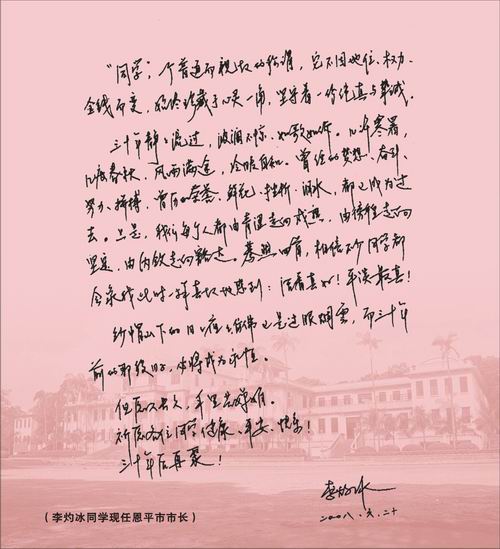 "同学",一个普通而亲切的称谓,它不因地位、权力、
金钱而变,始终珍藏于心灵一角,坚守着一份纯真与挚诚。
三十年静静流过,波澜不惊,如歌如吟。几十寒暑,
几度春秋,风雨满途,冷暖自知。曾经的梦想、奋斗、
努力、拼搏,曾历的荣誉、鲜花、挫折、泪水,都已成为过
去。只是,我们每个人都由青涩走向成熟,由彷徨走向
坚定,由内敛走向豁达。蓦然回首,相信不少同学都
会象我此时一样真切地感到:活着真好!平淡最真!
纱帽山下的日日夜夜仿佛已是过眼烟云,而三十年
前的那段,必将成为永恒。
但愿人长久,千里共婵娟。
祈愿各位同学健康、平安、快乐!
三十年后再聚!
李灼冰
二〇〇八.六.二十
(李灼冰同学现任恩平市市长)